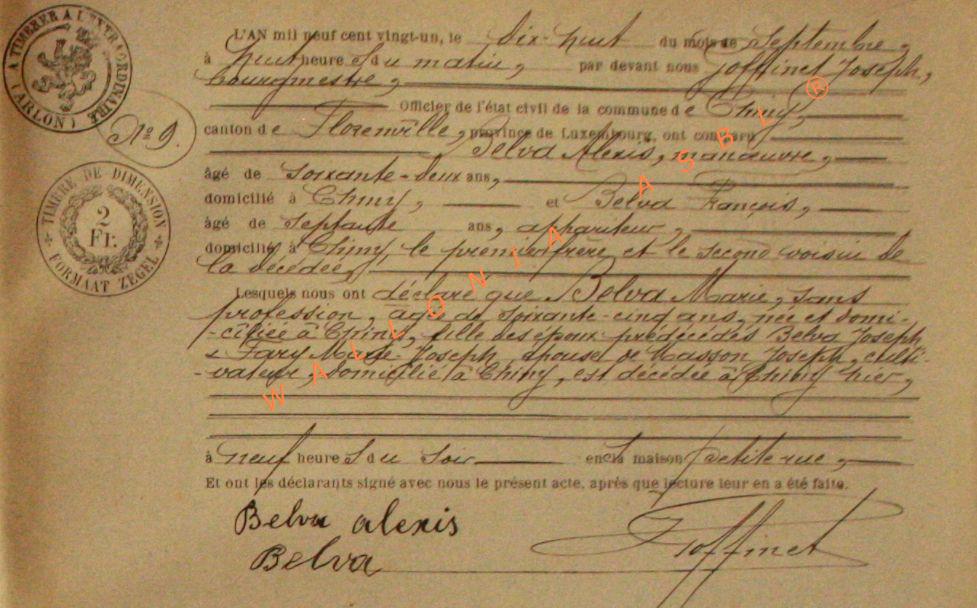 A TIMBRER A L'EXTRAORDINAIRE
(ARLON)
N° 9.
TIMBRE DE DIMENSION
2
Fr.
FORMAAT ZEGEL
L'AN mil neuf cent vingt-un, le dix-huit du mois de Septembre,
à huit heures du matin, par devant nous Joffinet Joseph,
bourgmestre,
Officier de l'état civil de la commune de Chiny,
canton de Florenville, province de Luxembourg, ont comparu
Belva Alexis, manœuvre,
âgé de soixante-deux ans,
domicilié à Chiny, et Belva François,
âgé de septante ans, appariteur,
domicilié à Chiny, le premier frère et le second voisin de
la décédée,
Lesquels nous ont déclaré que Belva Marie, sans
profession, âgée de soixante-cinq ans, née et domi-
-ciliée à Chiny, fille des époux prédécédés Belva Joseph
& Fary Marie-Joseph, épouse de Masson Joseph, culti-
-vateur, domicilié à Chiny, est décédée à Chiny hier,
à neuf heures du soir en la maison petite rue,
Et ont les déclarants signé avec nous le présent acte, après que lecture leur en a été faite.
Belva alexis
Belva
Joffinet
WALLONIA ASBL ®